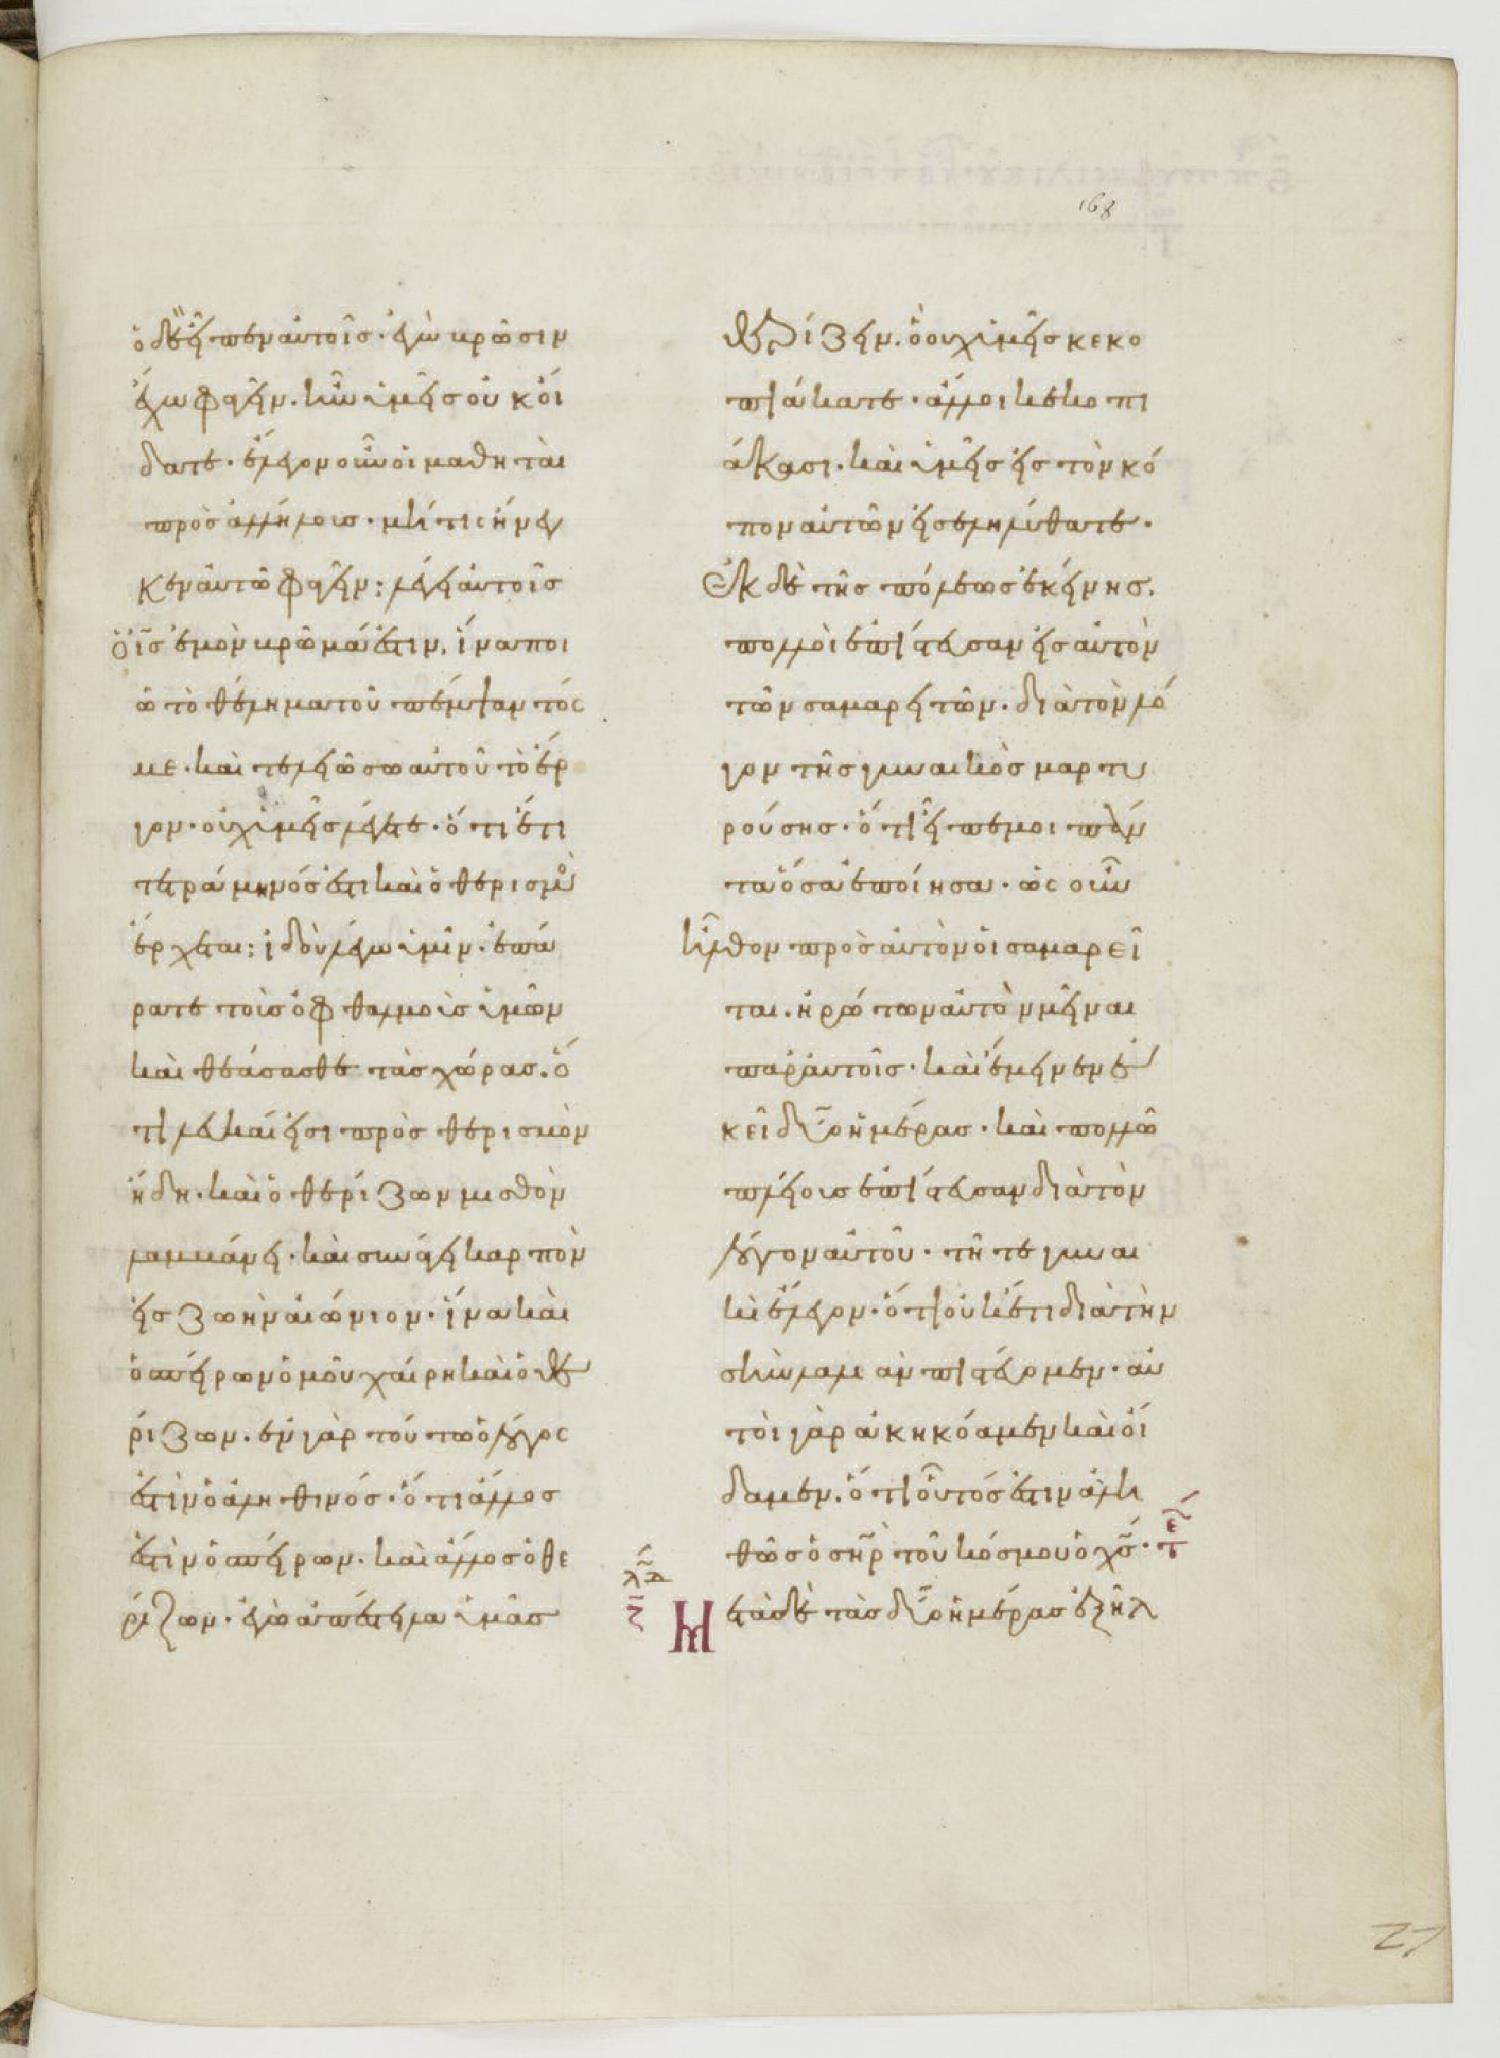 168
ὁ δὲ εἶπεν αὐτοῖς· ἐγὼ βρῶσιν
ἔχω φαγεῖν· ἣν ὑμεῖς οὐκ οἴ
δατε· ἔλεγον οὖν οἱ μαθηταὶ
πρὸς ἀλλήλους· μή τις ἤνεγ
κεν αὐτῶ φαγεῖν: λέγει αὐτοῖς
ὁ ἰς ἐμὸν βρῶμά ἐστιν, ἵνα ποι
ῶ τὸ θέλημα τοῦ πέμψαντός
με· καὶ τελειώσω αὐτοῦ τὸ ἔρ
γον· οὐχ ὑμεῖς λέγετε· ὅτι ἔτι
τετράμηνός ἐστι καὶ ὁ θερισμὸς
ἔρχεται: ἰδοὺ λέγω ὑμῖν· ἐπά
ρατε τοὺς ὀφθαλμοὺς ὑμῶν
καὶ θεάσασθε τὰς χώρας· ὅ
τι λευκαί εἰσι πρὸς θερισμὸν
ἤδη· καὶ ὁ θερίζων μισθὸν
λαμβάνει· καὶ συνάγει καρπὸν
εἰς ζωὴν αἰώνιον· ἵνα καὶ
ὁ σπείρων ὁμοῦ χαίρη καὶ ὁ θε
ρίζων· ἐν γὰρ τούτω ὁ λόγος
ἐστὶν ὁ ἀληθινός· ὅτι ἄλλος
ἐστὶν ὁ σπείρων· καὶ ἄλλος ὁ θε
ρίζων· ἐγὼ ἀπέστειλα ὑμᾶς
θερίζειν· ὃ οὐχ ὑμεῖς κεκο
πιάκατε· ἄλλοι κεκοπι
άκασι· καὶ ὑμεῖς εἰς τὸν κό
πον αὐτῶν εἰσεληλύθατε·
Ἐκ δὲ τῆς πόλεως ἐκείνης·
πολλοὶ ἐπίστευσαν εἰς αὐτὸν
τῶν σαμαρειτῶν· διὰ τὸν λό
γον τῆς γυναικὸς μαρτυ
ρούσης· ὅτι εἶπέ μοι πάν
τα ὅσα ἐποίησα· ὡς οὖν
ἦλθον πρὸς αὐτὸν οἱ σαμαρεῖ
ται· ἠρώτων αὐτὸν μεῖναι
παρ' αὐτοῖς· καὶ ἔμεινεν ἐ
κεῖ δύο ἡμέρας· καὶ πολλῶ
πλείους ἐπίστευσαν διὰ τὸν
λόγον αὐτοῦ· τῆ τε γυναι
κὶ ἔλεγον· ὅτι οὐκέτι διὰ τὴν
σὴν λαλιὰν πιστεύομεν· αὐ
τοὶ γὰρ ἀκηκόαμεν καὶ οἴ
δαμεν· ὅτι οὗτός ἐστιν ἀλη
θῶς ὁ σηρ τοῦ κόσμου ὁ χς· τε
λδ
ζ
Μετὰ δὲ τὰς δύο ἡμέρας ἐξῆλ
27